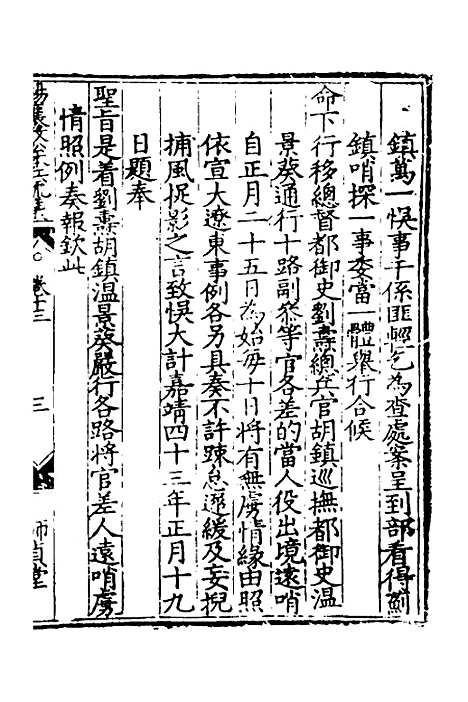 鎮萬一悞事干係匪輕乞為查處案呈到部看得薊
鎮哨探一事委當一體舉行合候
命下行移總督都御史劉燾總兵官胡鎮巡撫都御史溫
景葵通行十路副叅等官各差的當人役出境遠哨
自正月二十五日為始每十日將有無虜情緣由照
依宣大遼東事例各另具奏不許踈怠遲緩及妄捏
捕風捉影之言致悞大計嘉靖四十三年正月十九
日題奉
聖旨是着劉燾胡鎮溫景葵嚴行各路將官差人遠哨虜
情照例奏報欽此
卷十三
三
師貞堂